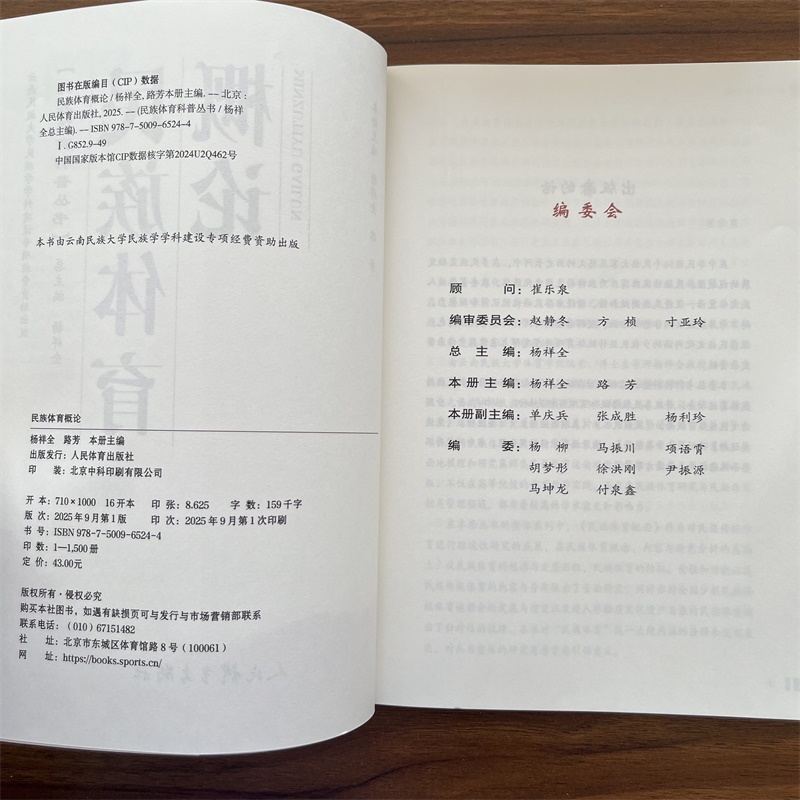 图书在版编目（CIP）数据
民族体育概论 / 杨祥全, 路芳本册主编. -- 北京：
人民体育出版社, 2025. -- (民族体育科普丛书 / 杨祥
全总主编). -- ISBN 978-7-5009-6524-4
Ⅰ. G852.9-49
中国国家版本馆CIP数据核字第2024U2Q462号
本书由云南民族大学民族学学科建设专项经费资助出版
民族体育概论
杨祥全 路芳 本册主编
出版发行：人民体育出版社
印 装：北京中科印刷有限公司
开 本：710×1000 16开本 印 张：8.625 字 数：159千字
版 次：2025年9月第1版 印 次：2025年9月第1次印刷
书 号：ISBN 978-7-5009-6524-4
印 数：1—1,500册
定 价：43.00元
版权所有·侵权必究
购买本社图书，如遇有缺损页可与发行与市场营销部联系
联系电话：（010）67151482
社 址：北京市东城区体育馆路8号（100061）
网 址：https://books.sports.cn/
编委会
顾 问：崔乐泉
编审委员会：赵静冬 方 桢 寸亚玲
总 主 编：杨祥全
本册主编：杨祥全 路 芳
本册副主编：单庆兵 张成胜 杨利珍
编 委：杨 柳 马振川 项语霄
胡梦彤 徐洪刚 尹振源
马坤龙 付泉鑫